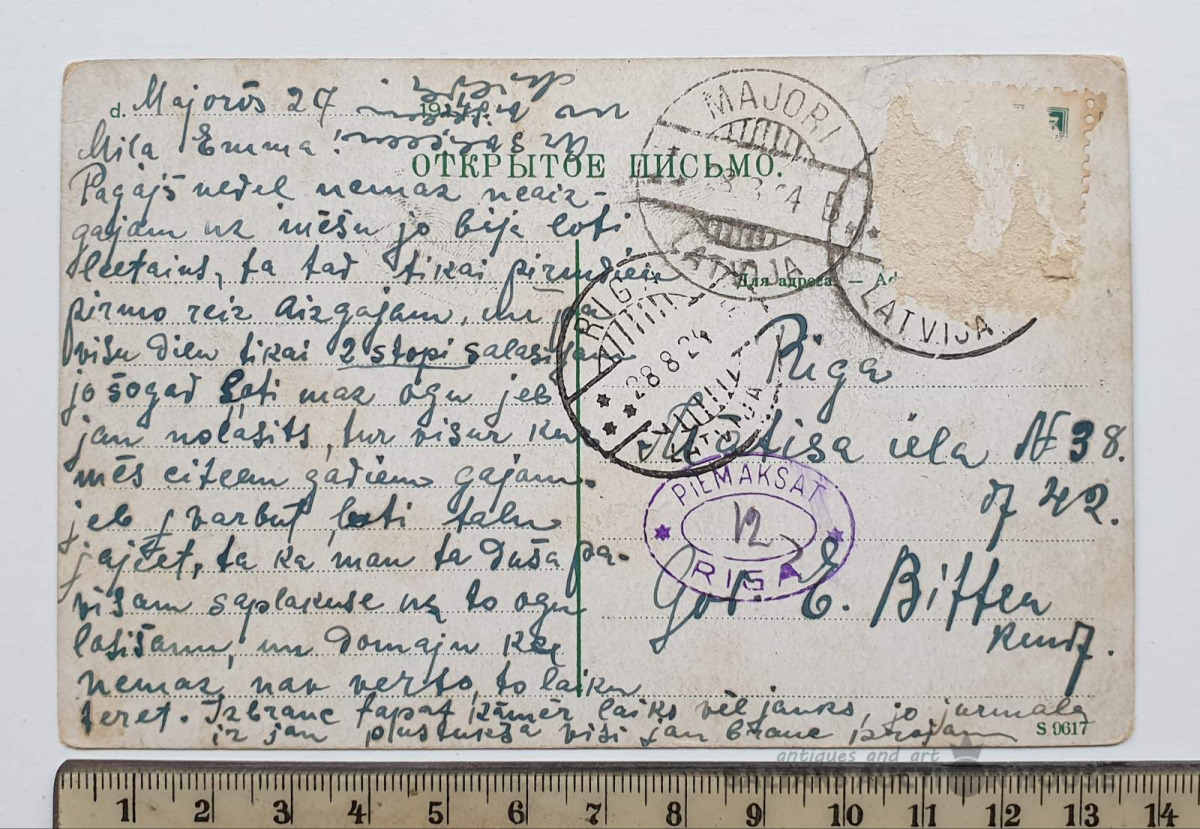 d. Majorōs 27
Mīļa Emma!
ОТКРЫТОЕ ПИСЬМО.
Pagājš nedeļ nemaz neaiz-
gājam uz mēšu jo bija ļoti
leetains, ta tad tikai pirmdien
pirmo reiz aizgajam, un pa
višu dien tikai 2 stopi salasijam
jo šogad ļoti maz ogu jeb
jau nolasits, tur visur kur
mēs citeem gadiem gajam.
jeb varbut ļoti talu
jajeet, ta ka man ta duša pa-
višam saplakuse uz to ogu
lasišanu, un domaju ka
nemaz nav verts, to laiku
teret. Izbrauc tapat kāmēr laiks vēl jauks, jo jurmala
ir jau pustukša visi jau brauc projam
MAJORI
24 B
LATVIJA
Для адреса. —
LATVIJA
RIGA
28.8.24
LATVIJA
Riga
Mātisa iela № 38.
dz 42.
PIEMAKSĀT
12
RIGA
E. Bitten
kundz.
S 9617
antiques and art
1 2 3 4 5 6 7 8 9 10 11 12 13 14